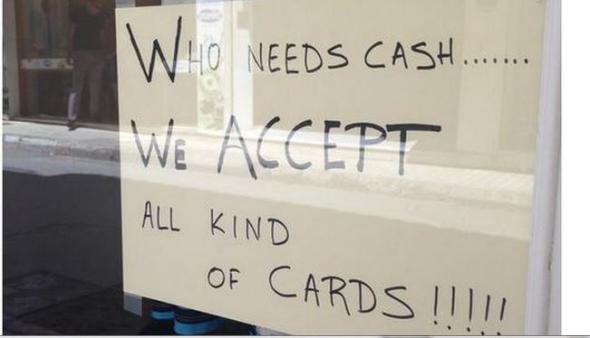 WHO NEEDS CASH.......
WE ACCEPT
ALL KIND
OF CARDS !!!!!